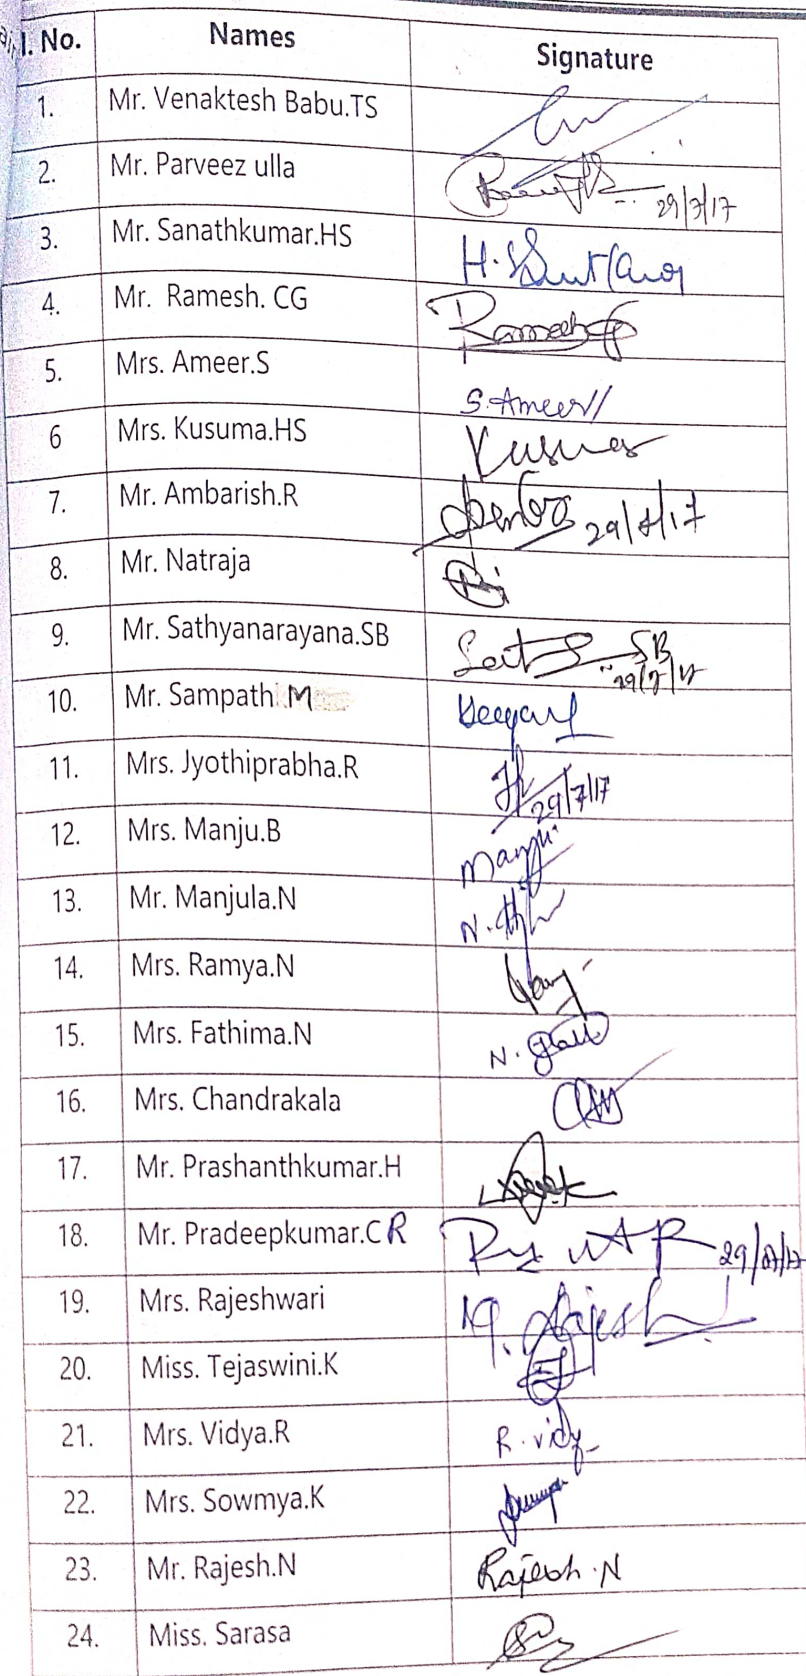 l. No. Names Signature
1. Mr. Venaktesh Babu.TS
2. Mr. Parveez ulla 29/7/17
3. Mr. Sanathkumar.HS
4. Mr. Ramesh. CG Ramesh
5. Mrs. Ameer.S S.Ameer
6 Mrs. Kusuma.HS Kusuma
7. Mr. Ambarish.R 29/7/17
8. Mr. Natraja
9. Mr. Sathyanarayana.SB SB 29/7/17
10. Mr. Sampath M
11. Mrs. Jyothiprabha.R 29/7/17
12. Mrs. Manju.B Manju
13. Mr. Manjula.N N.
14. Mrs. Ramya.N
15. Mrs. Fathima.N N.
16. Mrs. Chandrakala
17. Mr. Prashanthkumar.H
18. Mr. Pradeepkumar.CR 29/07/17
19. Mrs. Rajeshwari
20. Miss. Tejaswini.K
21. Mrs. Vidya.R R. vidy
22. Mrs. Sowmya.K
23. Mr. Rajesh.N Rajesh.N
24. Miss. Sarasa